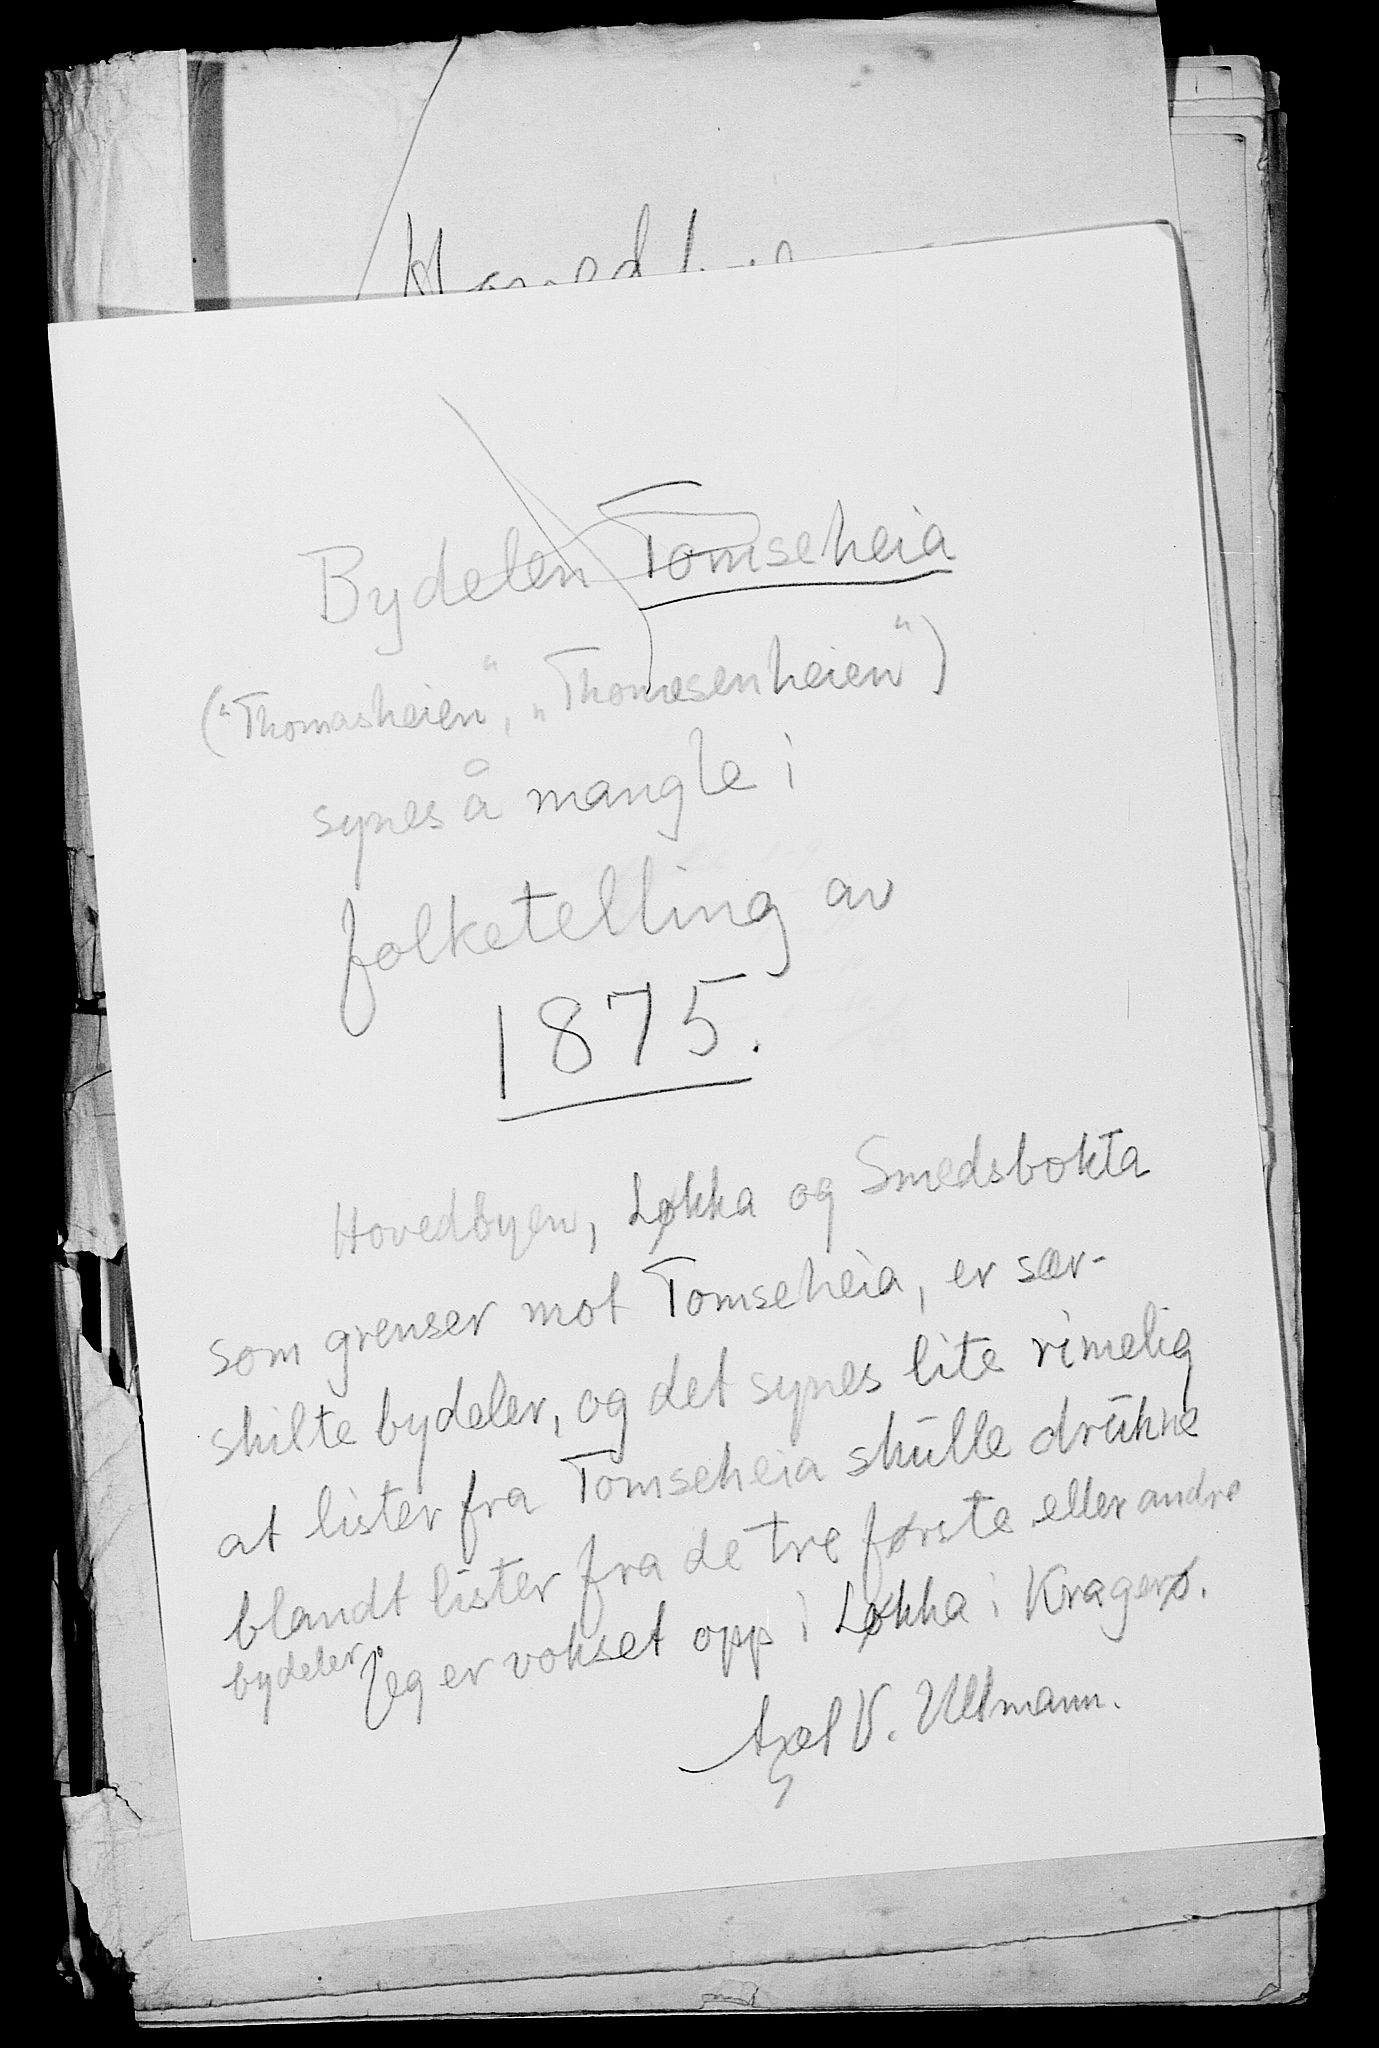 Bydelen Tomseheia
("Thomasheien", "Thomesenheien")
synes å mangle i
folketelling av
1875.
Hovedbyen, Løkka og Smedsbukta
som grenser mot Tomseheia, er sær-
skilte bydeler, og det synes lite rimelig
at lister fra Tomseheia skulle drukne
blandt lister fra de tre første eller andre
bydeler. Jeg er vokset opp i Løkka i Kragerø.
Axel V. Ullmann.